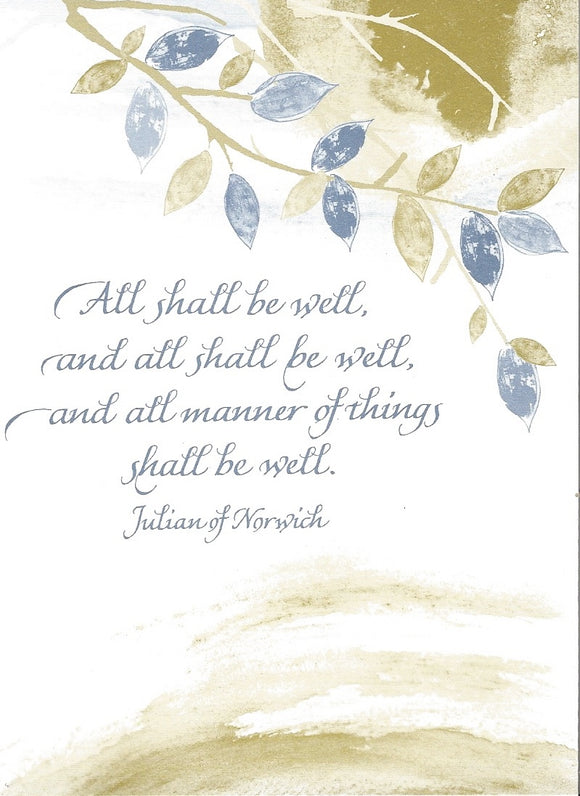 All shall be well,
and all shall be well,
and all manner of things
shall be well.
Julian of Norwich